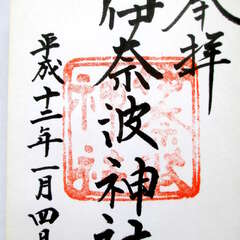 奉拝
伊奈波神社
平成十二年一月四日